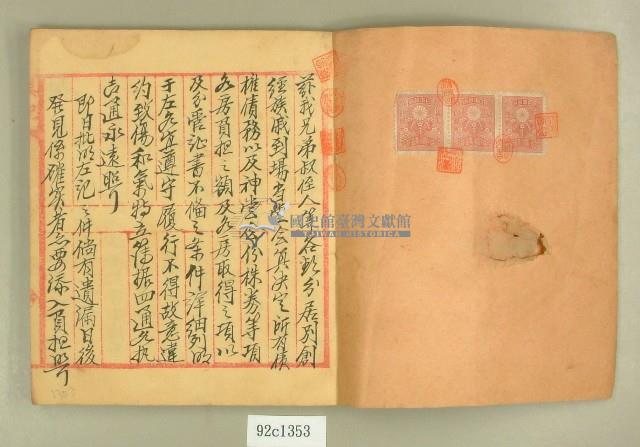 茲我兄弟叔侄人等合議分居列創
經族戚到場當眾會算決定所有債
權債務以及神嘗公份株券等項
各房負担之額及各房取得之項以
及分管証書不備之案件詳細列明
于左各宜遵守履行不得故意違
約致傷和氣特立簿據四通各執
壹通永遠照
即日批明左記之件倘有遺漏日後
発見係確實者亦要添入負担照
國史館臺灣文獻館
TAIWAN HISTORICA
92c1353